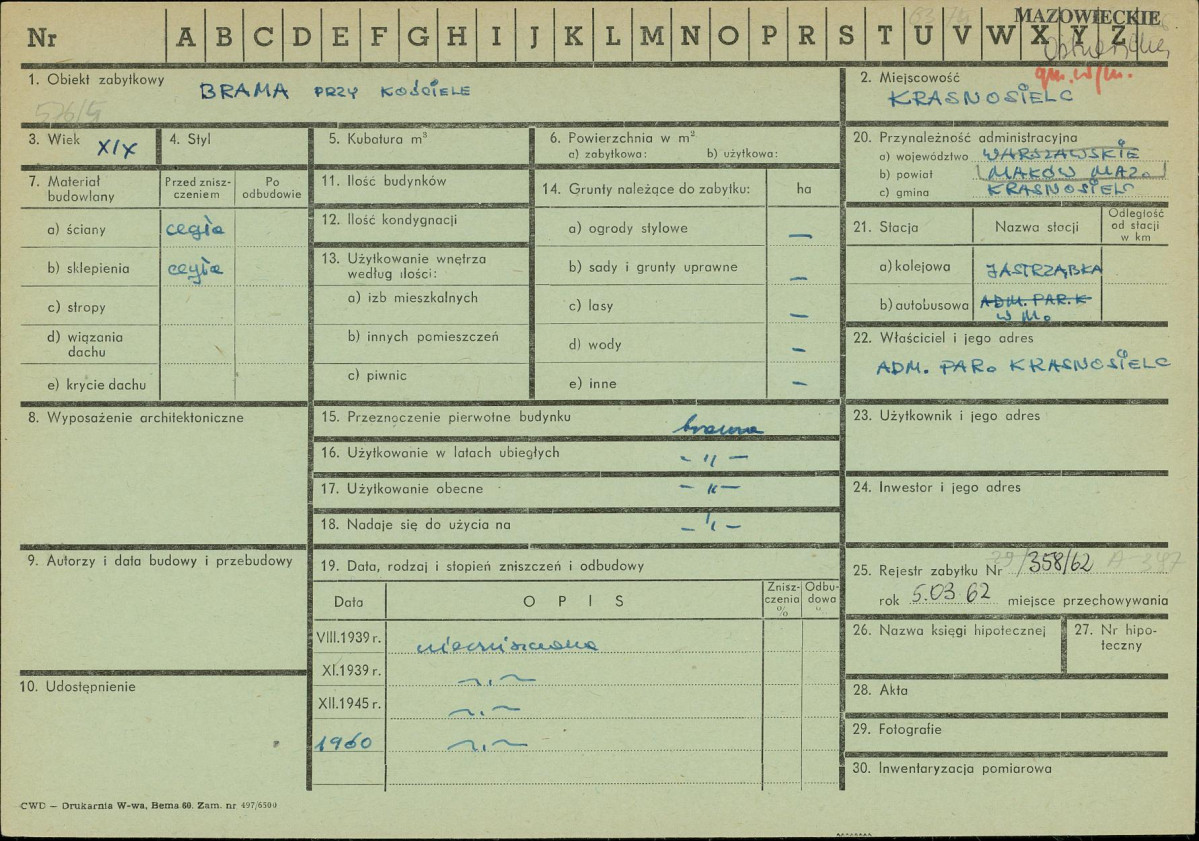 MAZOWIECKIE
Nr A B C D E F G H I J K L M N O P R S T U V W X Y Z
gm. w/m.
1. Obiekt zabytkowy BRAMA PRZY KOŚCIELE
2. Miejscowość
KRASNOSIELC
3. Wiek XIX
4. Styl
5. Kubatura m³
6. Powierzchnia w m²
a) zabytkowa: b) użytkowa:
20. Przynależność administracyjna
a) województwo WARSZAWSKIE
b) powiat MAKÓW MAZ.
c) gmina KRASNOSIELC
7. Materiał budowlany
Przed znisz-
czeniem
Po
odbudowie
a) ściany cegła
b) sklepienia cegła
c) stropy
d) wiązania
dachu
e) krycie dachu
11. Ilość budynków
12. Ilość kondygnacji
13. Użytkowanie wnętrza
według ilości:
a) izb mieszkalnych
b) innych pomieszczeń
c) piwnic
14. Grunty należące do zabytku: ha
a) ogrody stylowe —
b) sady i grunty uprawne —
c) lasy —
d) wody —
e) inne —
21. Stacja Nazwa stacji
Odległość
od stacji
w km
a) kolejowa JASTRZĄBKA
b) autobusowa ADM. PAR. K
W M.
22. Właściciel i jego adres
ADM. PAR. KRASNOSIELC
8. Wyposażenie architektoniczne
15. Przeznączenie pierwotne budynku brama
16. Użytkowanie w latach ubiegłych — " —
17. Użytkowanie obecne — " —
18. Nadaje się do użycia na — " —
23. Użytkownik i jego adres
24. Inwestor i jego adres
9. Autorzy i data budowy i przebudowy
19. Data, rodzaj i stopień zniszczeń i odbudowy
Data OPIS
Znisz-
czenia
%
Odbu-
dowa
%
VIII.1939 r. niezniszczona
XI.1939 r. ~ . ~
XII.1945 r. ~ . ~
1960 ~ . ~
25. Rejestr zabytku Nr 29/358/62 A-387
rok 5.03.62 miejsce przechowywania
26. Nazwa księgi hipotecznej
27. Nr hipo-
teczny
10. Udostępnienie
28. Akta
29. Fotografie
30. Inwentaryzacja pomiarowa
CWD — Drukarnia W-wa, Bema 60. Zam. nr 497/6500